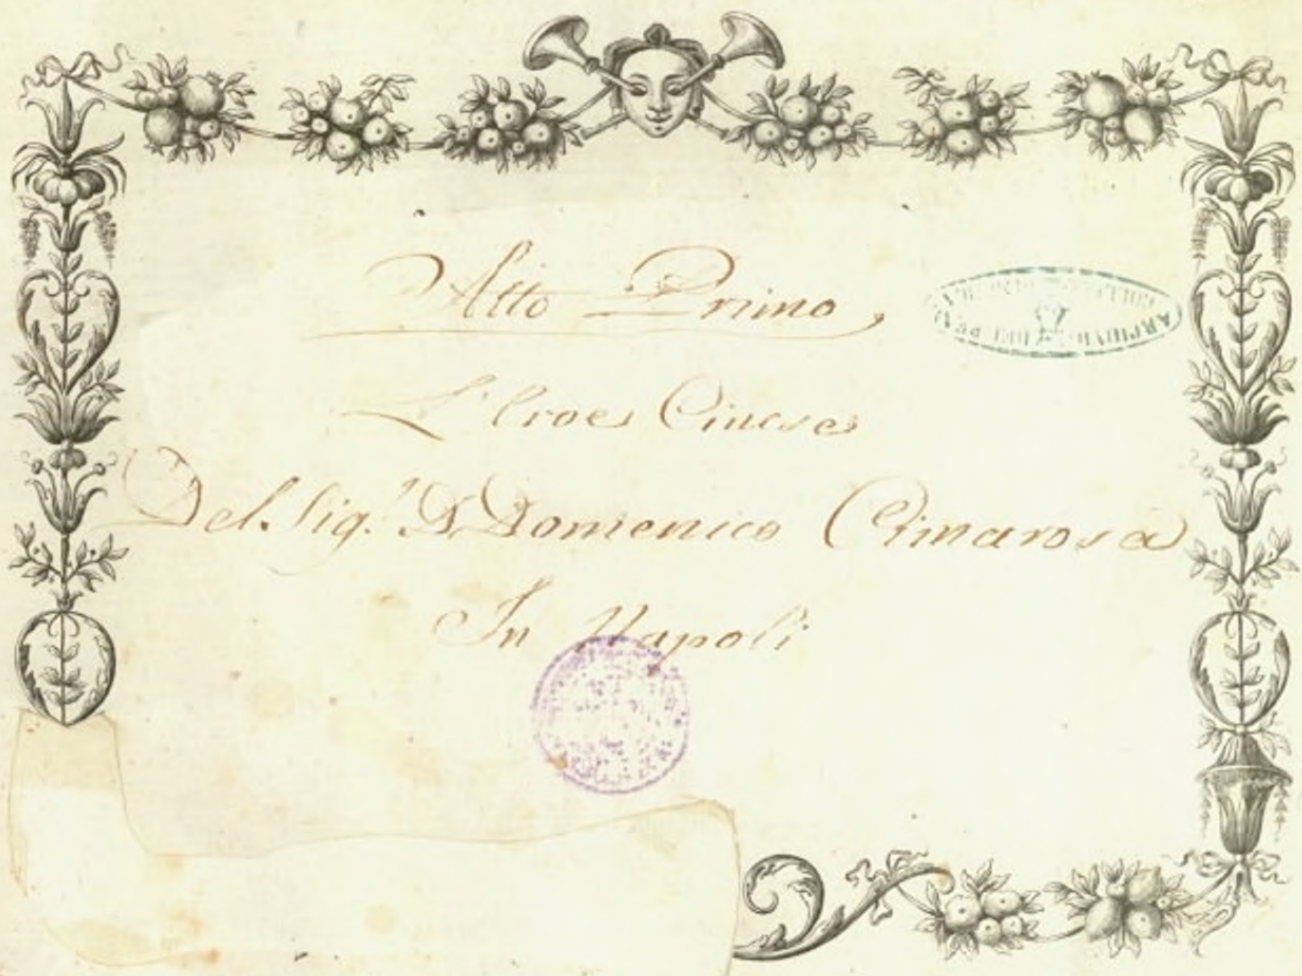 Atto Primo,
L'Eroe Cinese
Del. Sig.r D Domenico Cimarosa
In Napoli